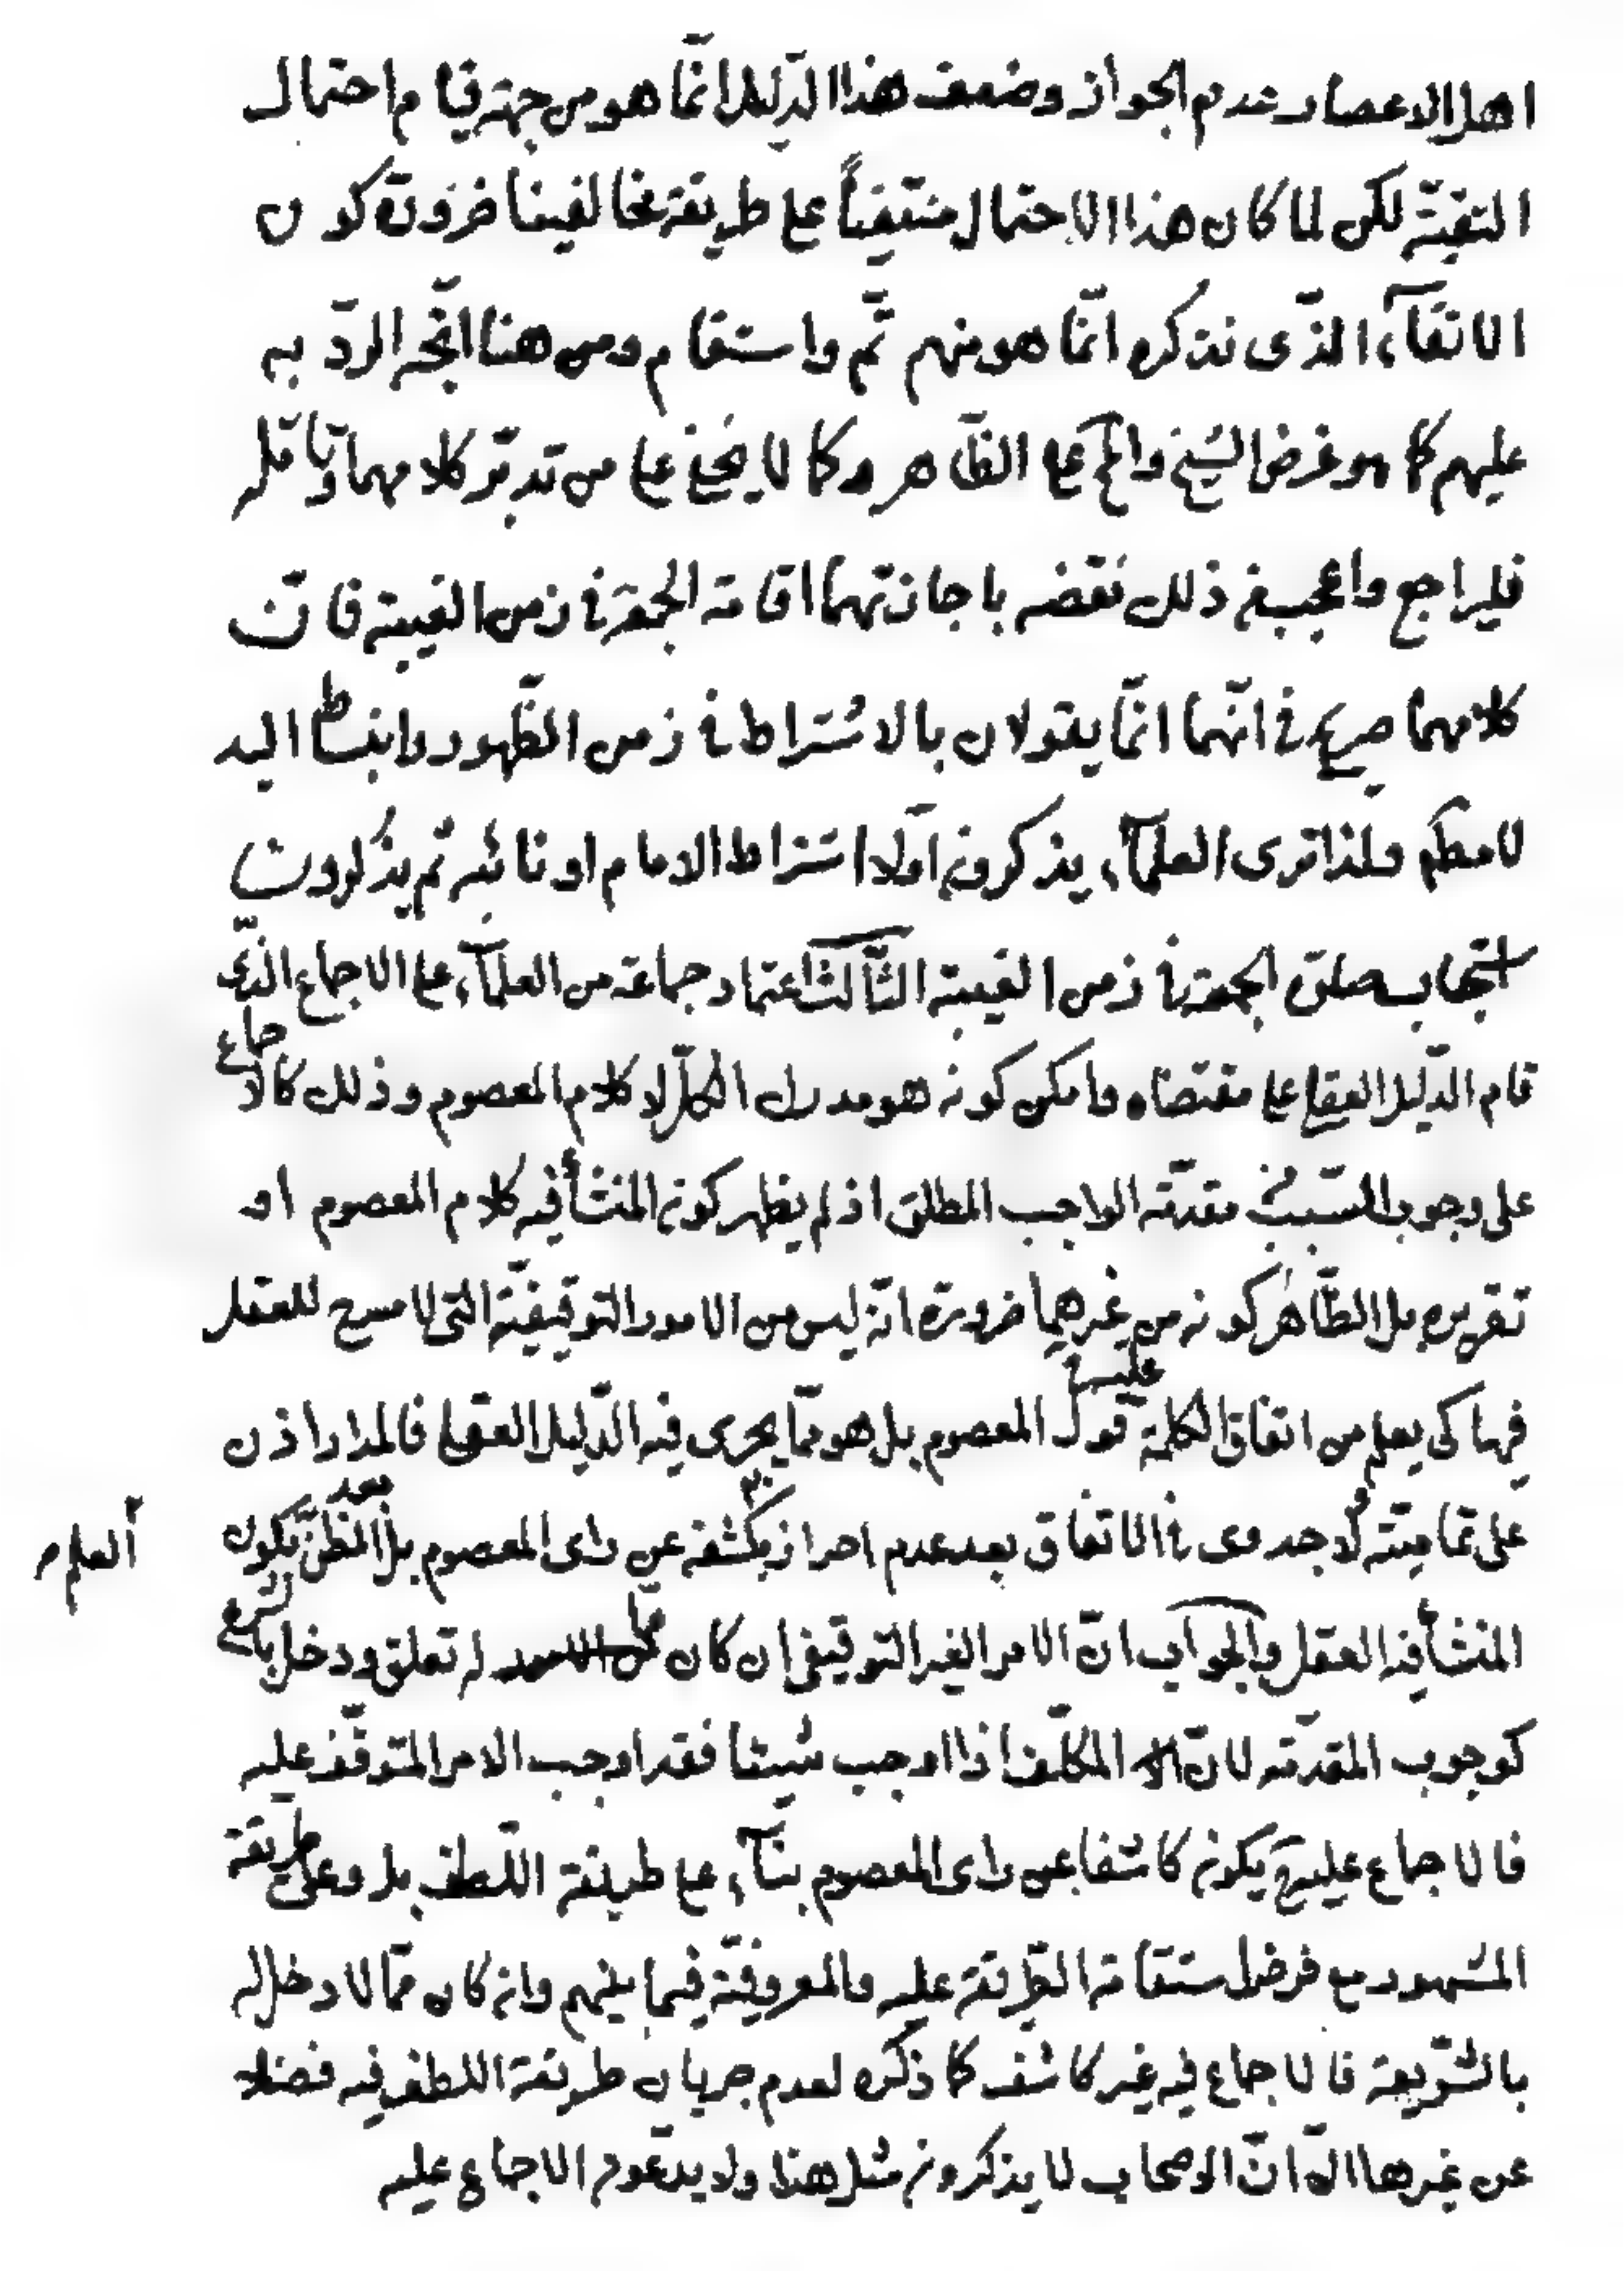 اهل الاعصار عدم الجواز وضعف هذا الدّليل انّما هو من جهة قيام احتمال
التقيّة لكن لما كان هذا الاحتمال منتفياً على طريقة مخالفينا ضرورة كون
الاتقآء الذّى نذكره انّما هو منهم تمّ واستقام ومن هنا اتّجه الردّ به
عليهم كما هو غرض الشيخ والم على الظّاهر وكما لا يخفى على من تدبّر كلامهما وتأمّله
فليراجع واعجب من ذلك نقضه باجازتهما اقامة الجمعة فى زمن الغيبة فانّ
كلامهما صريح فى انّهما انّما يقولان بالاشتراط فى زمن الظّهور وانبساط اليد
لا مطلقا ولذا ترى العلمآء يذكرون اولا اشتراط الامام او نائبه ثم يذكرون
استحباب صلوة الجمعة فى زمن الغيبة الثّالث اعتماد جماعة من العلمآء على الاجماع الذّى
قام الدّليل العقلى على مقتضاه وامكن كونه هو مدرك الكلّ لا كلام المعصوم وذلك كالاجماع
على وجوب السّبب فى مقدّمة الواجب المطلق اذ لم يظهر كون المنشأ فيه كلام المعصوم او
تقريره بل الظّاهر كونه من غيرهما ضرورة انّه ليس من الامور التوقيفيّة التى لا مسرح للعقل
فيها كى يعلم من اتفاق الكلمة عليها قول المعصوم بل هو ممّا يجرى فيه الدّليل العقلى فالمدار اذن
على تماميّته ولا جدوى فى الاتفاق بعد عدم احراز كشفه عن راى المعصوم بل الظنّ بكون
العلم
المنشأ فيه العقل والجواب انّ الامر الغير التوقيفى ان كان ممّا له تعلق ودخل بالشرع
كوجوب المقدّمه لانّ المكلّف اذا اوجب شيئا فقد اوجب الامر المتوقّف عليه
فالاجماع عليه يكون كاشفا عن راى المعصوم بنآء على طريقة اللّطف بل وعلى طريقة
المشهور مع فرض استقامة الطّريقة عليه والمعروفيّة فيما بينهم وان كان ممّا لا دخل له
بالشّريعة فالاجماع فيه غير كاشف كما ذكره لعدم جريان طريقة اللطف فيه فضلا
عن غيرها الّا انّ الاصحاب لا يذكرون مثل هذا ولا يدّعون الاجماع عليه